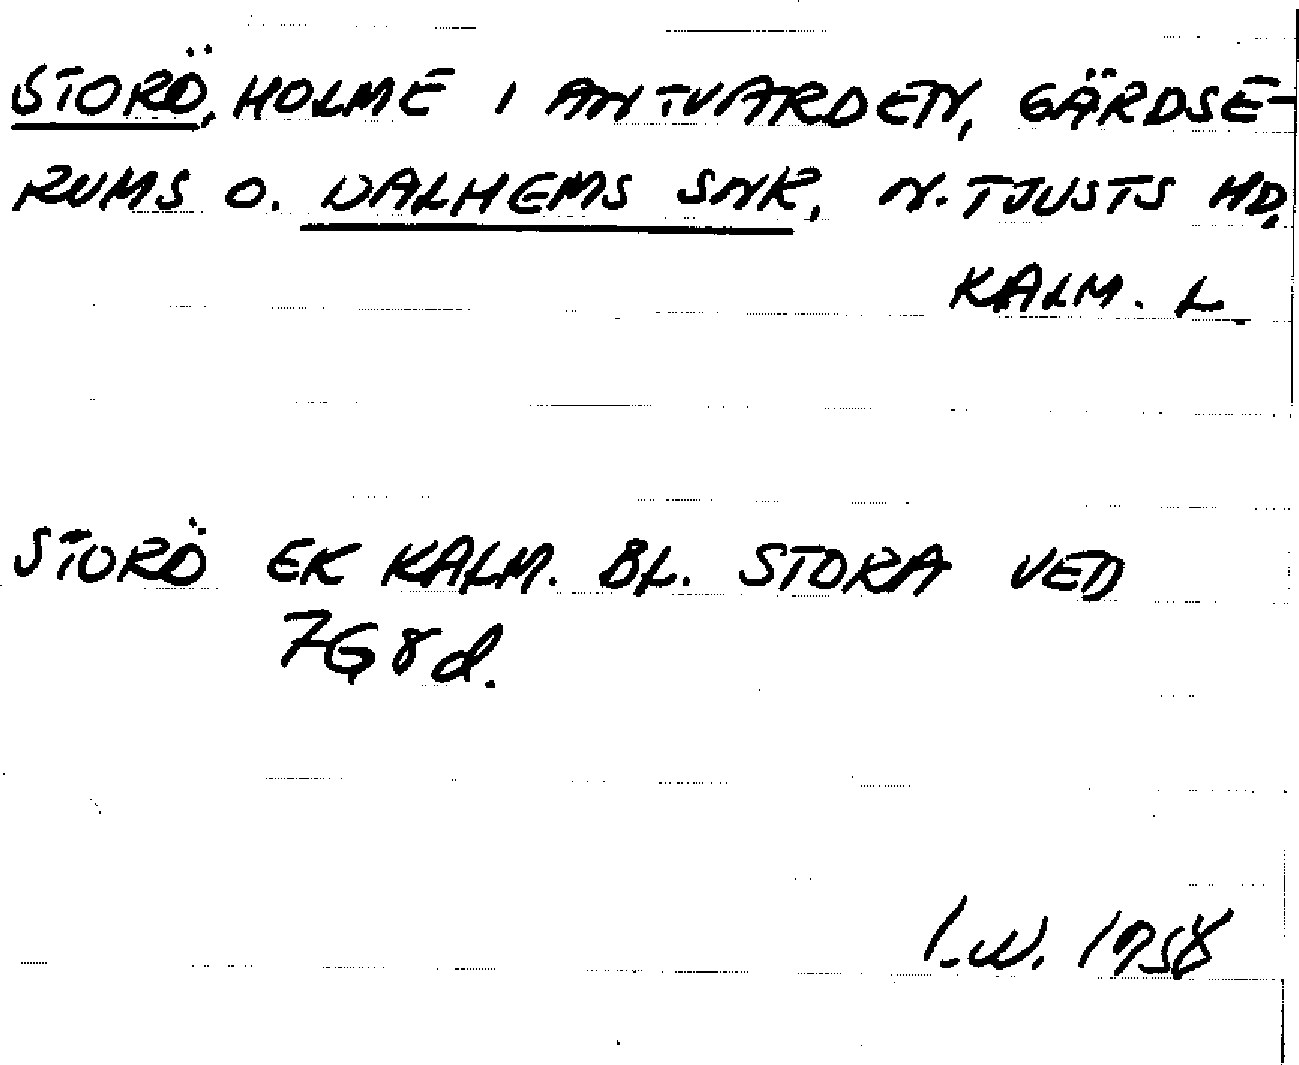 STORÖ, HOLME I ANTVARDEN, GÄRDSE-
RUMS O. DALHEMS SNR, N. TJUSTS HD,
KALM. L
STORÖ EK KALM. BL. STORA VED
7G8d.
I.W. 1958